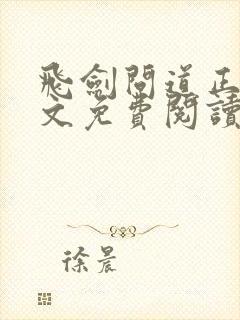 飛劍問道正
文免費閱讀
徐晨